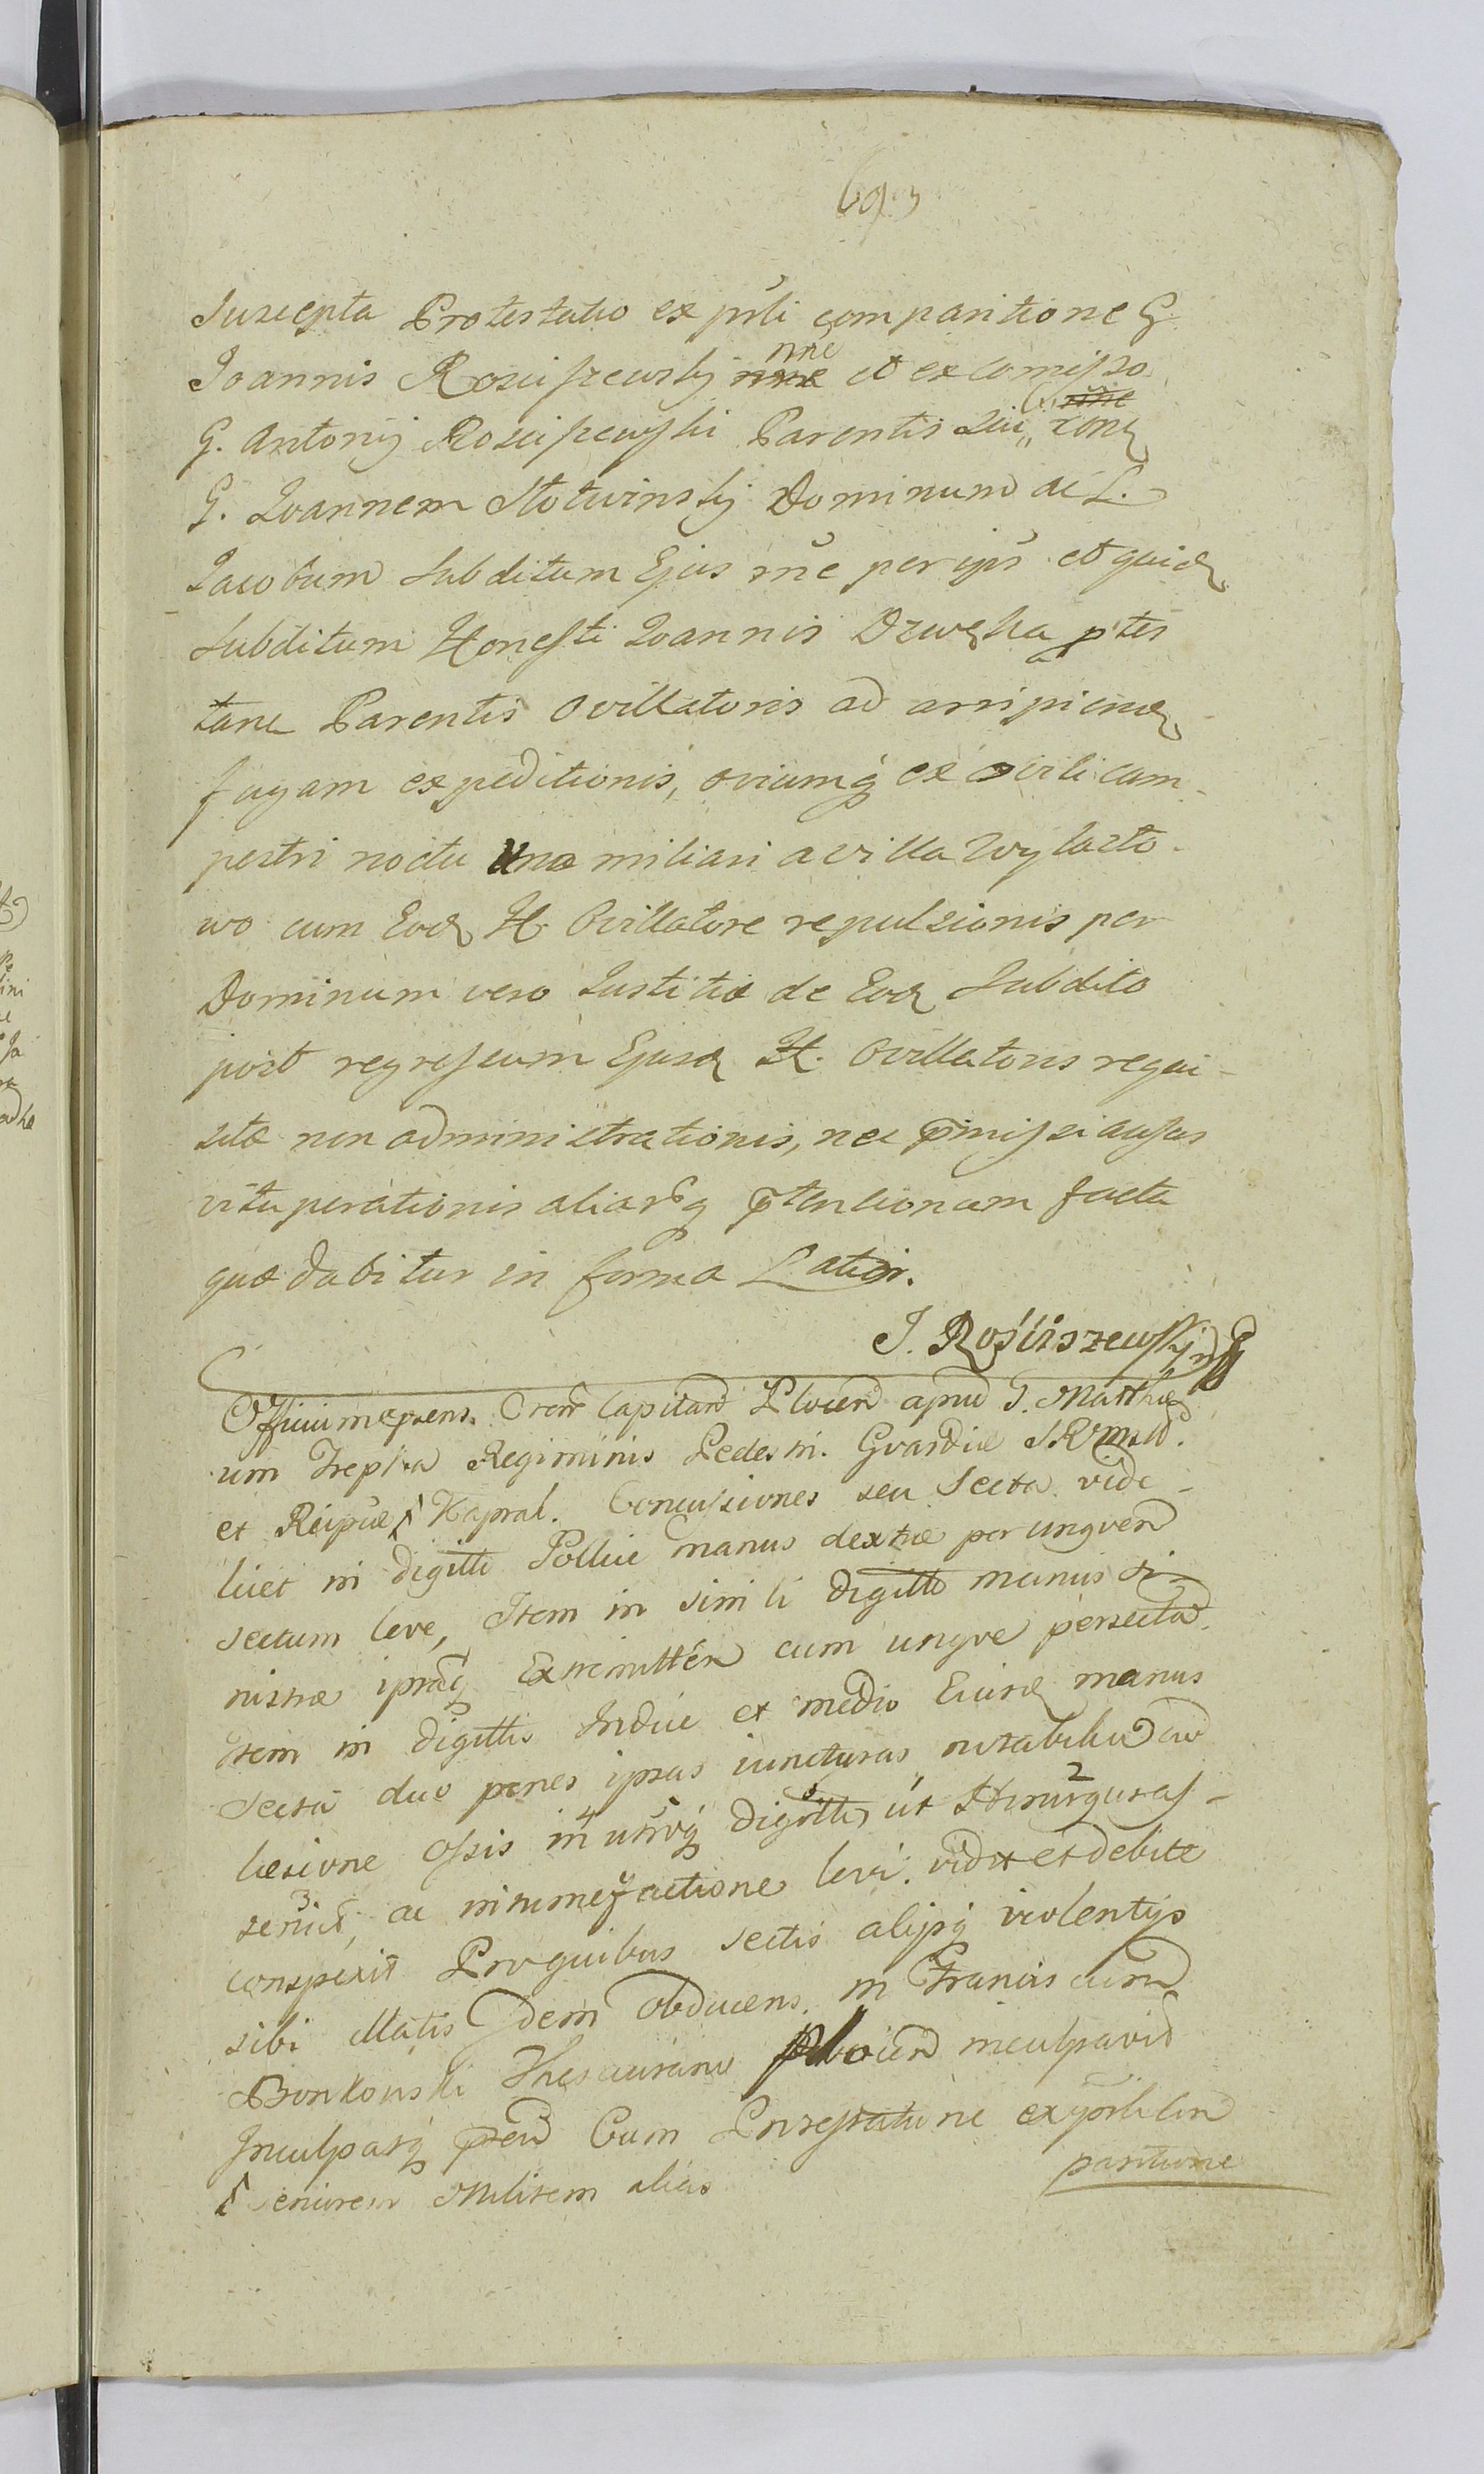 693
Suscepta Protestatio ex prli comparitione G.
Joannis Rosciszewskij nne et ex comisso
G. Antonij Rosciszewski Parentis Sui, cone
G. Joannem Slotwinskij Dominum ac L.
Jacobum Subditum Ejus rne per ips et quid
Subditum Honesti Joannis Drwęka ptes
tane Parentis Ovillatoris ad arripiend
fugam expeditionis, oviumq ex ovili cam-
pestri noctu una miliari a villa Wylazło-
wo cum Eod H. Ovillatore repulsionis per
Dominum vero Justitiæ de Eod Subdito
post regressum Ejusd H. Ovillatoris requi-
sitæ non administrationis, nec pmissi ausus
vituperationis aliarq ptensionum facta
quæ dabitur in forma Latior.
J. Rościszewskj mp
Officium præsens Cren Capitan Plocen apud G. Matthæ
um Trepka Regiminis Pedestri. Gvardiæ S R M
et Reipue Kapral. Concussiones seu Secta vide-
licet in digitti Pollice manus dextræ per ungvem
sectum leve, Item in simili digitto manus si-
nistræ ipsaq Extremitten cum ungve persecta
Item in digittis Indice et medio Eiusd manus
Secta duo penes ipsas iuncturas notabilia cũ
læsione ossis in utroq digitto, ut Hirurgus as-
seruit, ac intumefactione levi. vidit et debite
conspexit Pro quibus sectis alijsq violentijs
sibi illatis Idem obducens. in Francis cum
Bonkowski Thesaurario Plocen inculpavit
Inculpatq præn Cum Protestatione ex prli Com
paritione
Seniorem Militem alias